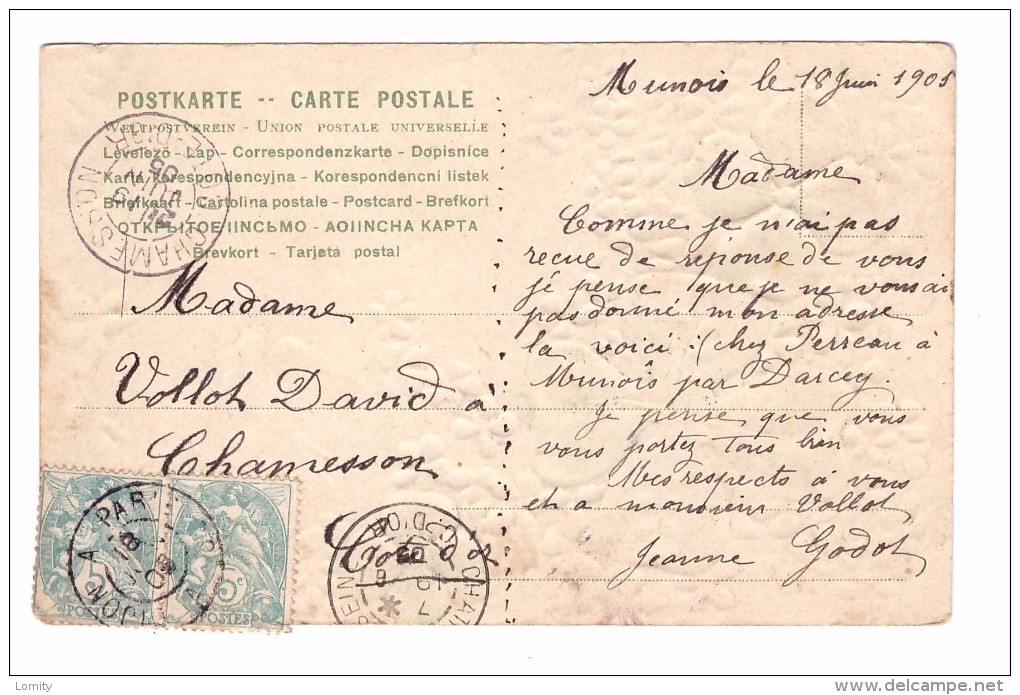 POSTKARTE -- CARTE POSTALE
WELTPOSTVEREIN - UNION POSTALE UNIVERSELLE
Levelező - Lap - Correspondenzkarte - Dopisnice
Karta korespondencyjna - Korespondencni listek
Briefkaart - Cartolina postale - Postcard - Brefkort
ОТКРЫТОЕ IІНСЬМО - АОІІНСНА КАРТА
Brevkort - Tarjeta postal
CHAMESSON
COTE-D'OR
Madame
Vollot David à
Chamesson
Côte d'Or
5c
POSTES
5c
POSTES
Munois le 18 Juin 1905
Madame
Comme je n'ai pas
recue de réponse de vous
je pense que je ne vous ai
pas donné mon adresse
la voici : (chez Perreau à
Munois par Darcey.
Je pense que vous
vous portez tous bien
Mes respects à vous
et a monsieur Vollot
Jeanne Godot
Lomity
delcampe.net